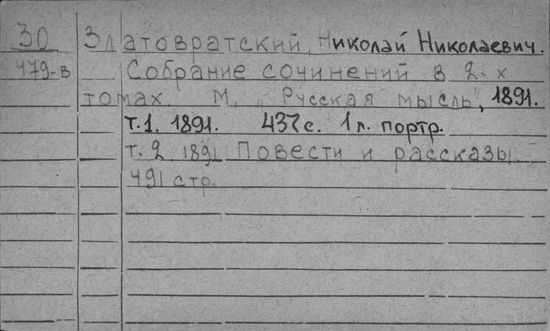 30 Златовратский, Николай Николаевич.
479-в Собрание сочинений в 2-х
томах. М. "Русская мысль", 1891.
т.1. 1891. 437с. 1 л. портр.
т. 2 1891 Повести и рассказы.
491 стр.